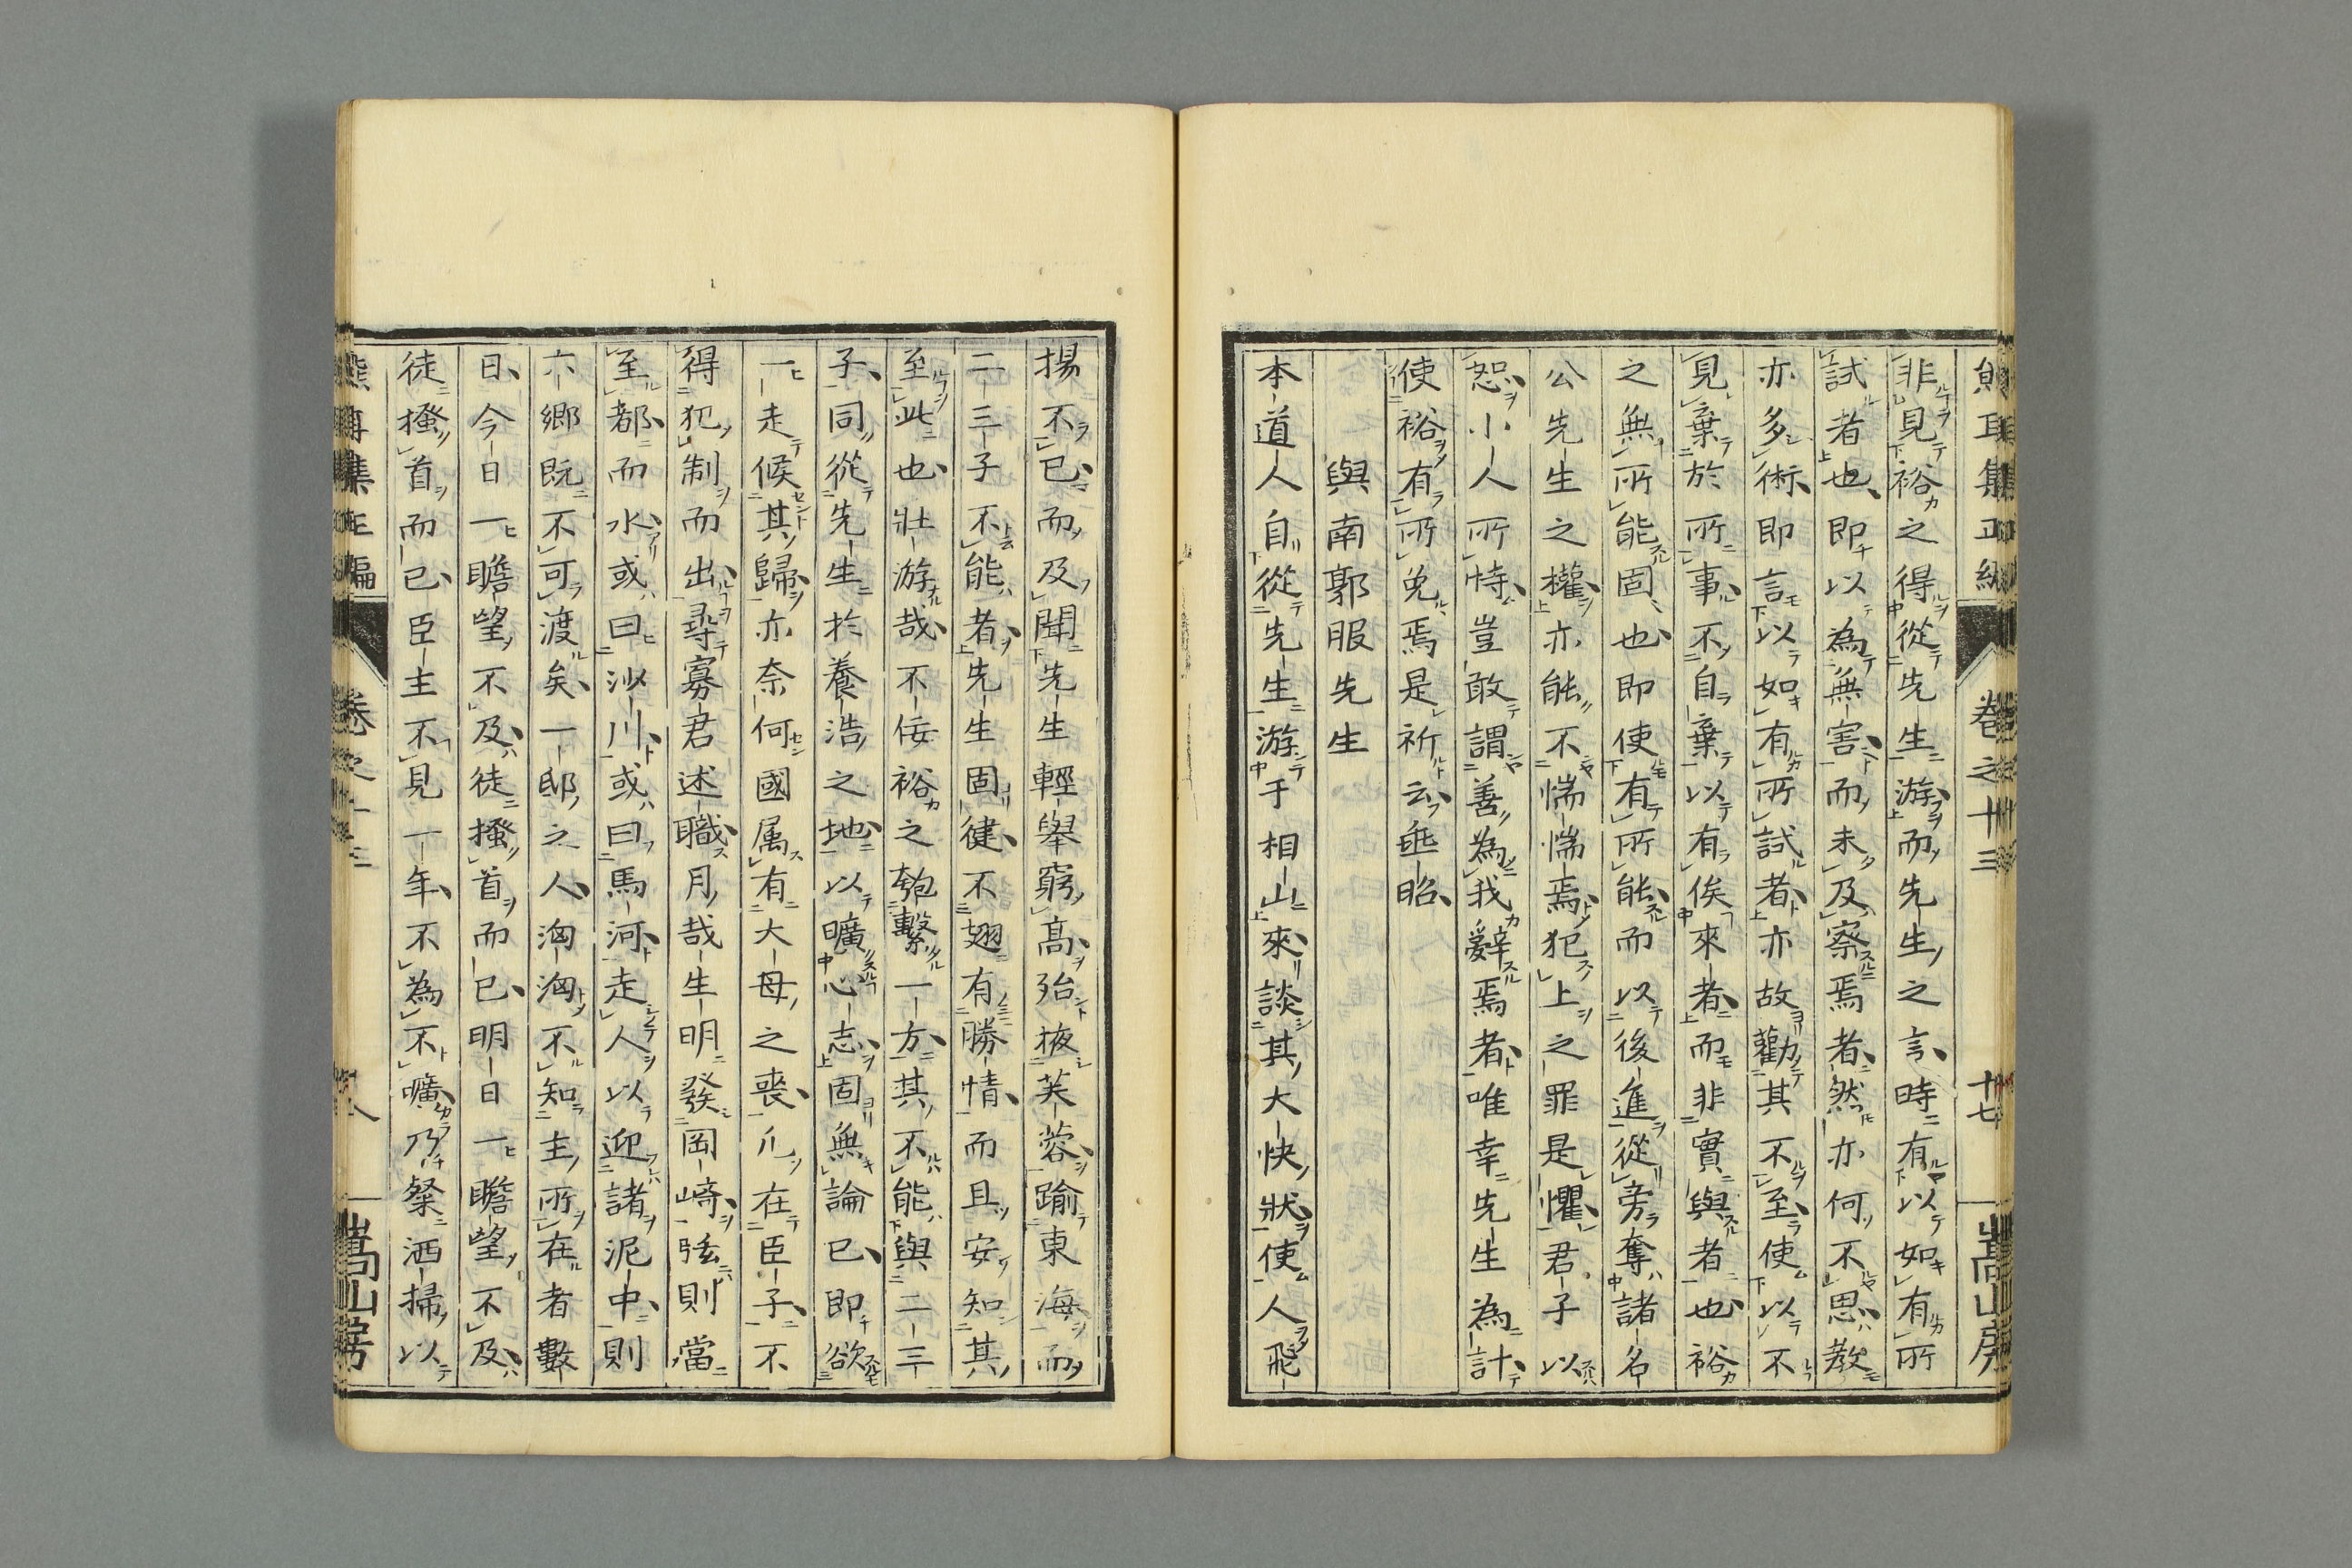 非見裕之得從先生游而先生之言時有以如有所
試者也即以為無害而未及察焉者然亦何不思教
亦多術即言以如有所試者亦故勸其不至使以不
見棄於所事不自棄以有俟來者而非實與者也裕
之無所能固也即使有所能而以後進從旁奪諸名
公先生之權亦能不惴惴焉犯上之罪是懼君子以
恕小人所恃豈敢謂善為我辭焉者唯幸先生為計
使裕有所免焉是祈云亟昭
與南郭服先生
本道人自從先生游于相山來談其大快狀使人飛
揚不已而及聞先生輕舉窮高殆掖芙蓉踰東海而
二三子不能者先生固健不翅有勝情而且安知其
至此也壯游哉不佞裕之匏繫一方其不能與二三
子同從先生於養浩之地以曠心志固無論已即欲
一走候其歸亦奈何國属有大母之喪凡在臣子不
得犯制而出尋寡君述職月哉生明發岡﨑弦則當
至都而水或曰沙川或曰馬河走人以迎諸泥中則
六鄉既不可渡矣一邸之人洶洶不知主所在者數
日今日一瞻望不及徒搔首而已明日一瞻望不及
徒搔首而已臣主不見一年不為不曠乃粲洒掃以
卷之十三
十七
嵩山房